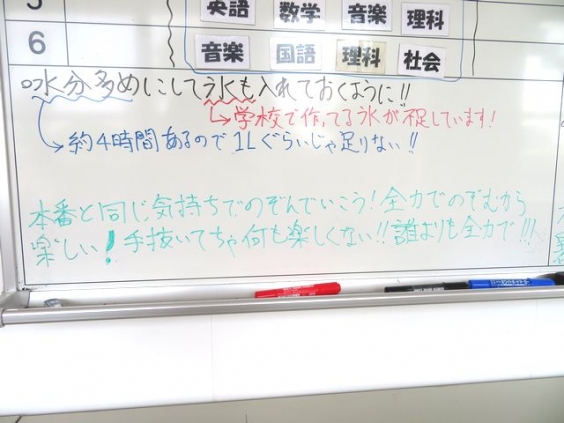 5 英語 数学 音楽 理科
6 音楽 国語 理科 社会
○水分多めにして氷も入れておくように!!
↳学校で作ってる氷が不足しています!
↳約4時間あるので1Lぐらいじゃ足りない!!
本番と同じ気持ちでのぞんでいこう!全力でのぞむから
楽しい!手抜いてちゃ何も楽しくない!!誰よりも全力で!!!